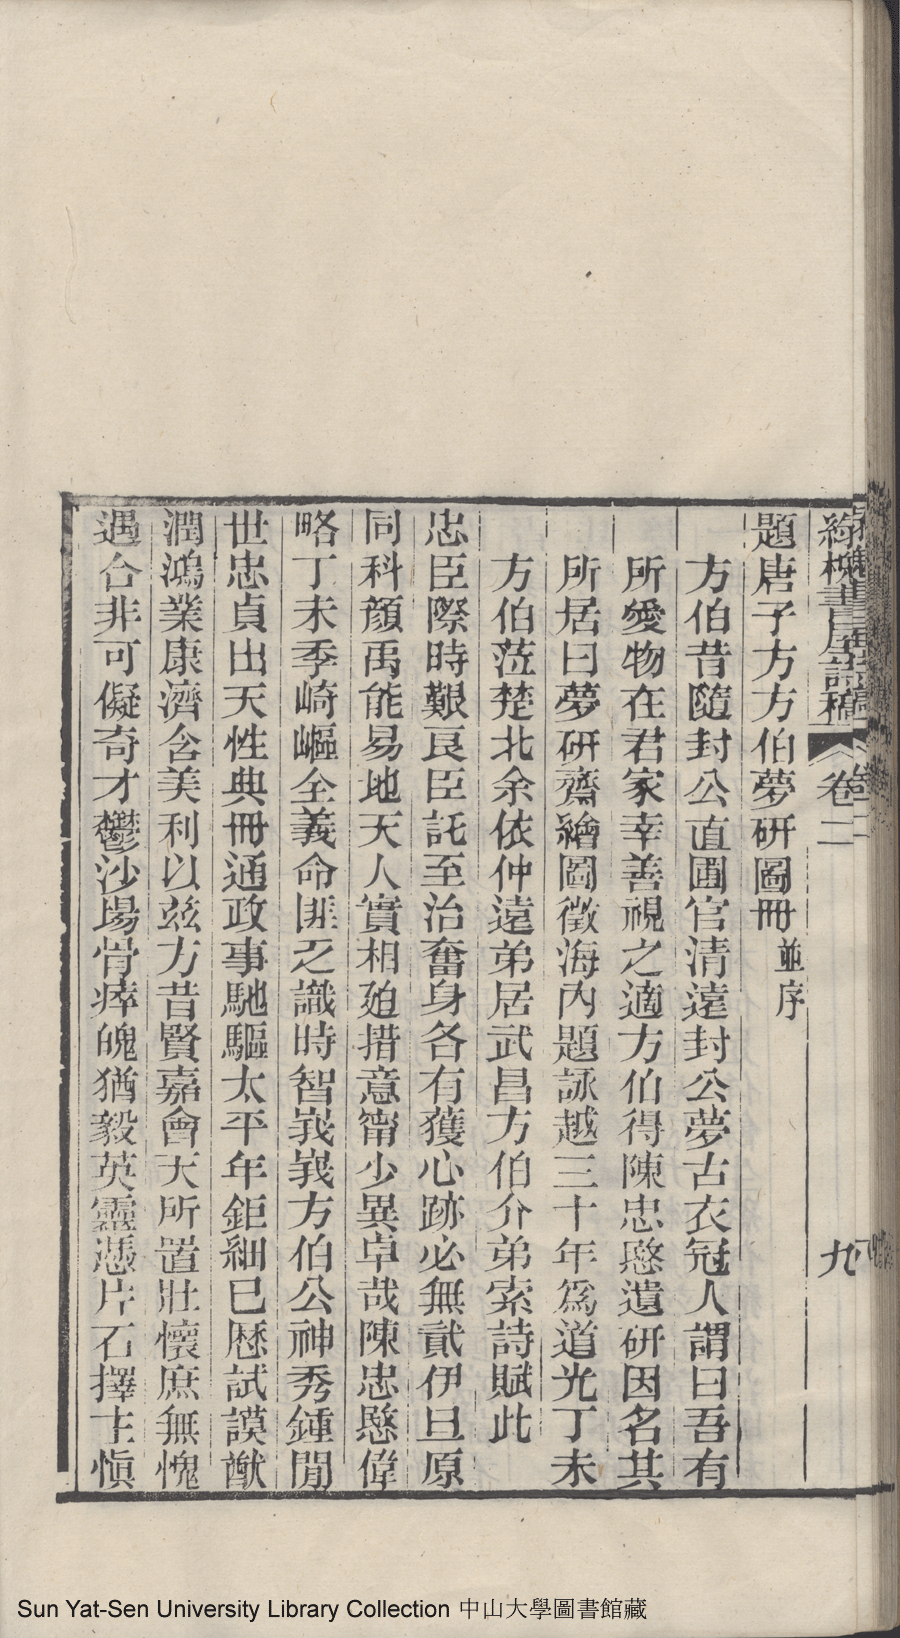 綠槐書屋詩稿 卷二 九
題唐子方方伯夢研圖冊並序
方伯昔隨封公直圃官清遠封公夢古衣冠人謂曰吾有
所愛物在君家幸善視之適方伯得陳忠愍遺研因名其
所居曰夢研齋繪圖徵海內題詠越三十年爲道光丁未
方伯莅楚北余依仲遠弟居武昌方伯介弟索詩賦此
忠臣際時艱良臣託至治奮身各有獲心跡必無貳伊旦原
同科顏禹能易地天人實相廹措意甯少異卓哉陳忠愍偉
略丁未季崎嶇全義命匪乏識時智峩峩方伯公神秀鍾閒
世忠貞出天性典冊通政事馳驅太平年鉅細已歷試謨猷
潤鴻業康濟含美利以兹方昔賢嘉會天所置壯懷庶無愧
遇合非可儗奇才鬱沙場骨瘁魄猶毅英靈憑片石擇主愼
Sun Yat-Sen University Library Collection 中山大學圖書館藏